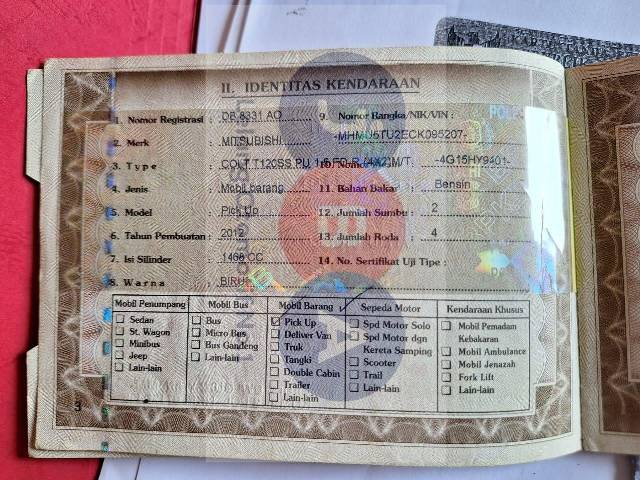 II. IDENTITAS KENDARAAN
1. Nomor Registrasi : DB 8331 AO
2. Merk : MITSUBISHI
3. Type : COLT T120SS PU 1.5 FD-R (4X2)M/T
4. Jenis : Mobil barang
5. Model : Pick Up
6. Tahun Pembuatan : 2012
7. Isi Silinder : 1468 CC
8. Warna : BIRU
9. Nomor Rangka/NIK/VIN :
-MHMU5TU2ECK095207-
10. Nomor : -4G15HY9401-
11. Bahan Bakar : Bensin
12. Jumlah Sumbu : 2
13. Jumlah Roda : 4
14. No. Sertifikat Uji Tipe :
Mobil Penumpang
Sedan
St. Wagon
Minibus
Jeep
Lain-lain
Mobil Bus
Bus
Micro Bus
Bus Gandeng
Lain-lain
Mobil Barang
Pick Up
Deliver Van
Truk
Tangki
Double Cabin
Trailer
Lain-lain
Sepeda Motor
Spd Motor Solo
Spd Motor dgn
Kereta Samping
Scooter
Trail
Lain-lain
Kendaraan Khusus
Mobil Pemadam
Kebakaran
Mobil Ambulance
Mobil Jenazah
Fork Lift
Lain-lain
3